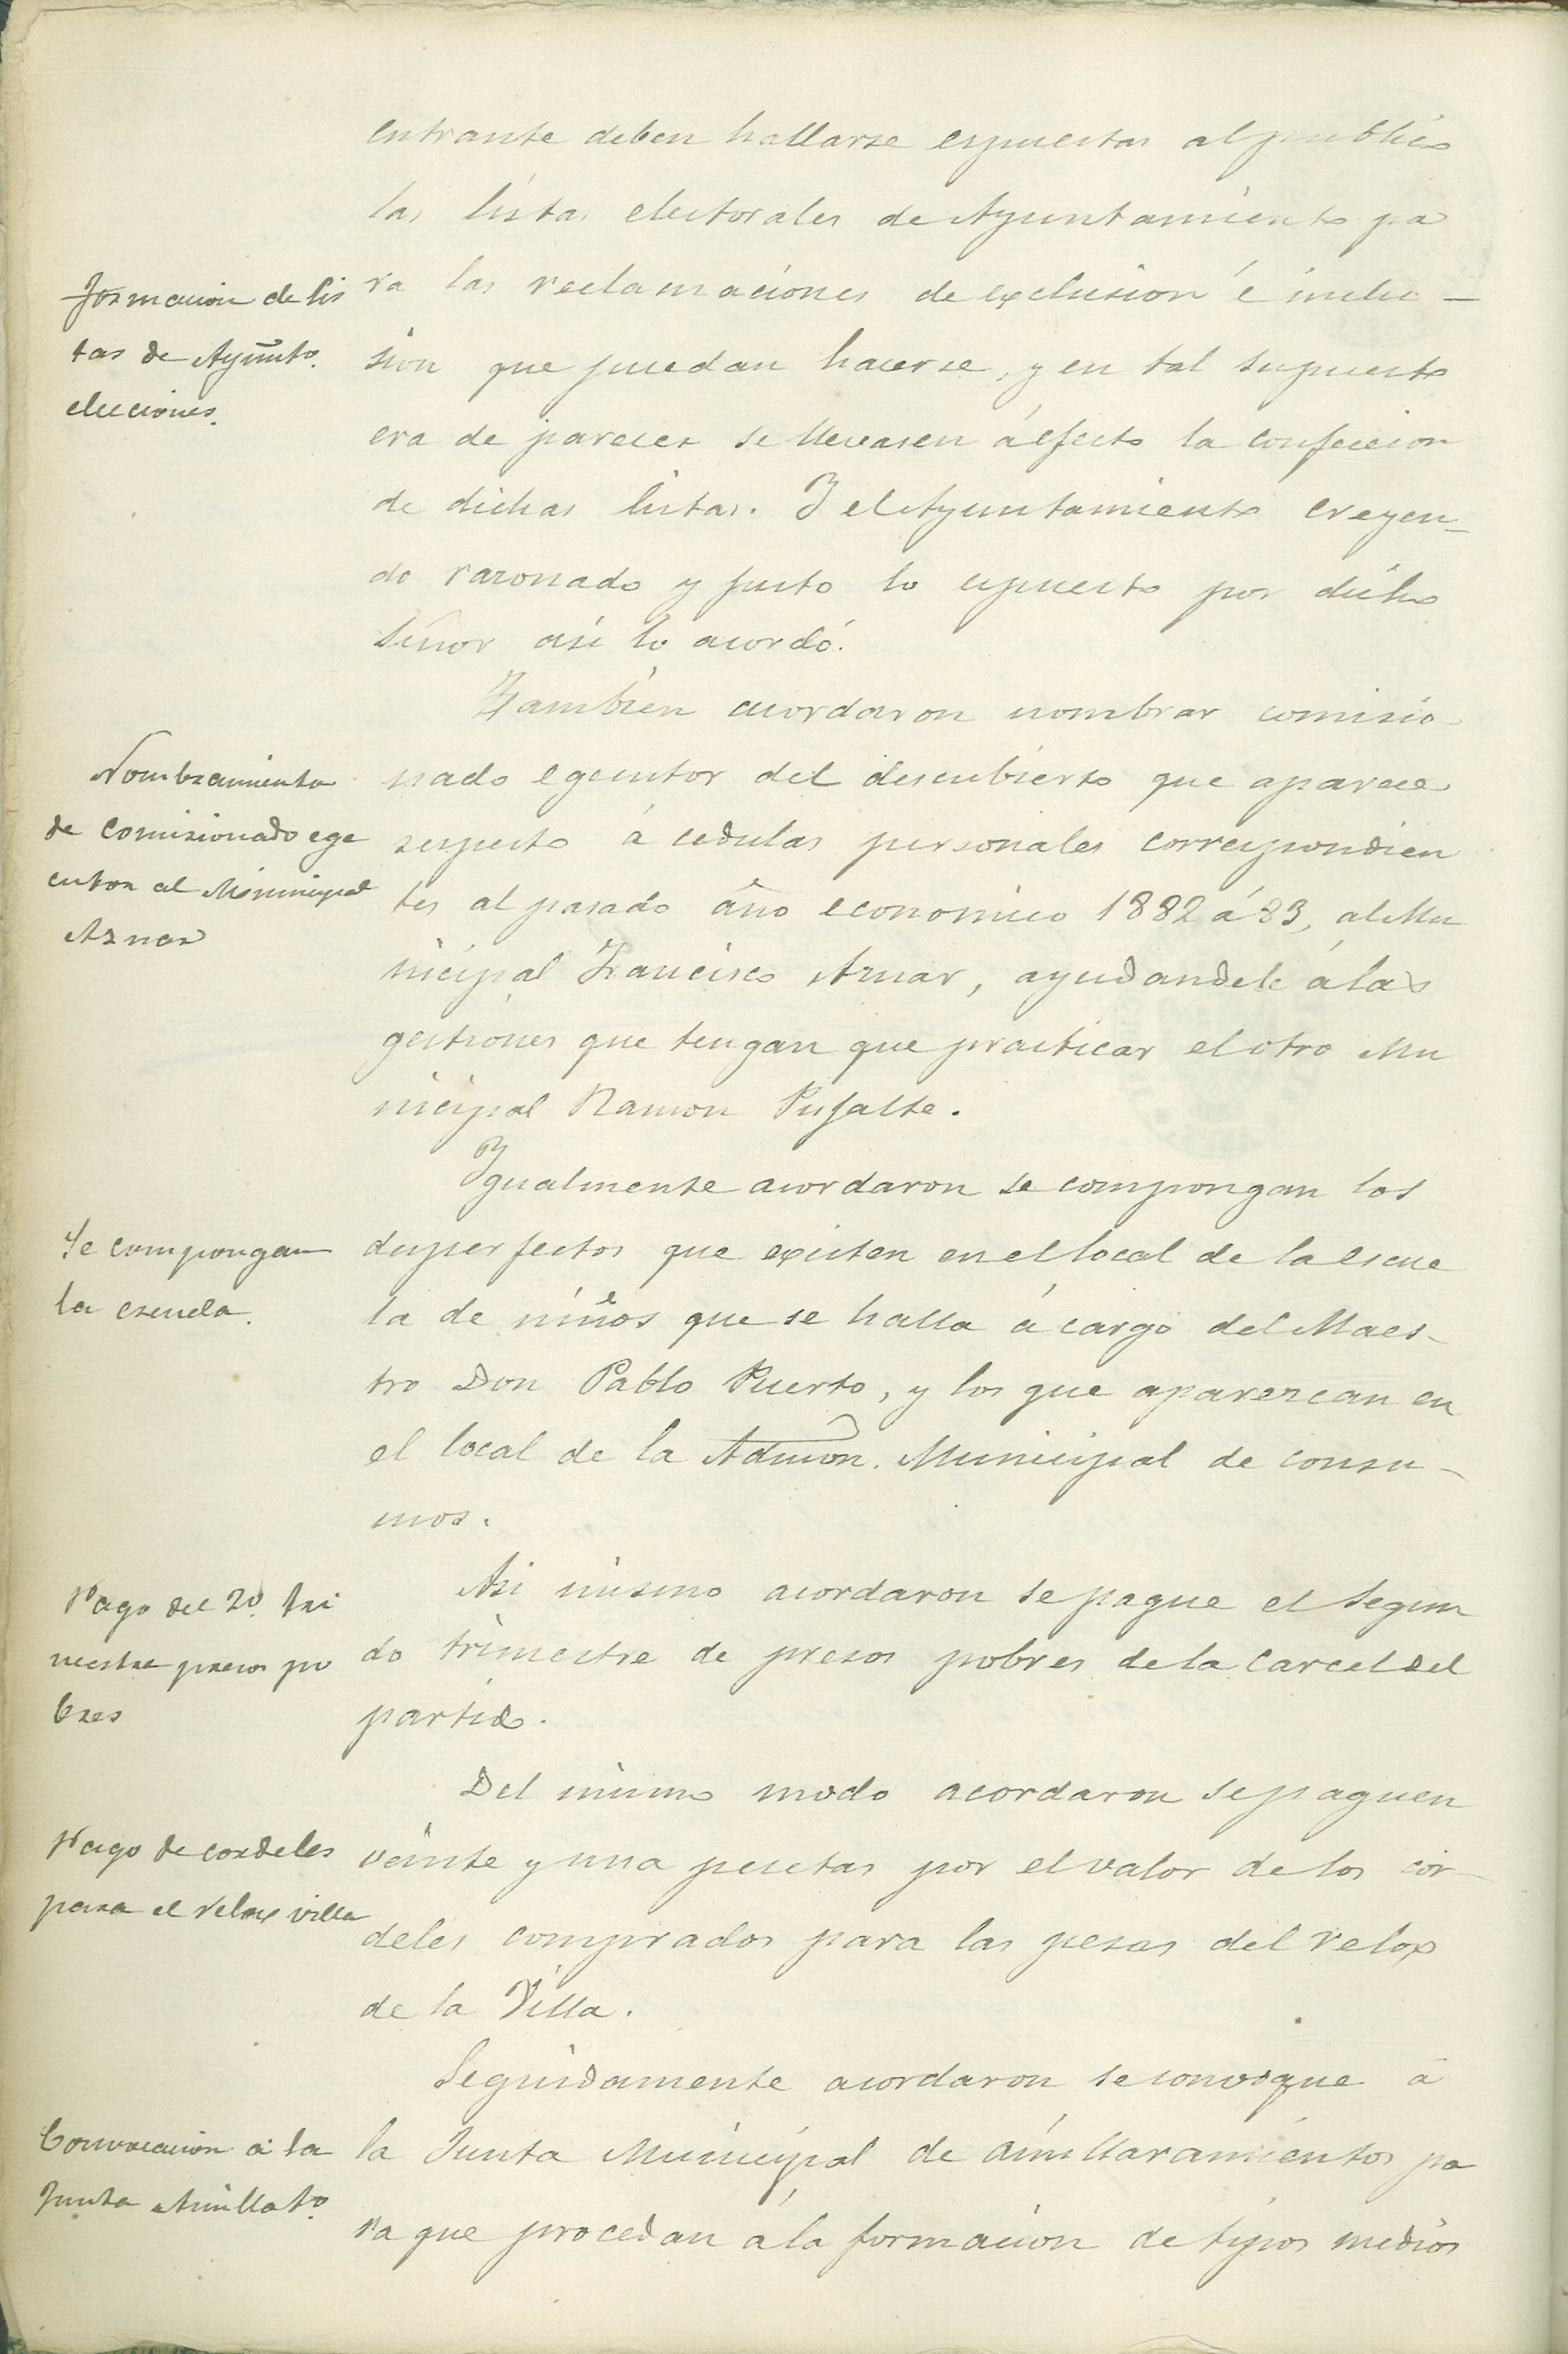 entrante deben hallarse espuestas al publico
las listas electorales de Ayuntamiento pa
Formacion de lis
tas de Ayunto.
elecciones.
ra las reclamaciones de exclusion é inclu-
sion que puedan hacerse, y en tal supuesto
era de parecer se llevasen á efecto la confeccion
de dichas listas. Y el Ayuntamiento creyen-
do razonado y justo lo espuesto por dicho
Señor asi lo acordó.
Tambien acordaron nombrar comisio
Nombramiento
de comisionado ege
cutor al Municipal
Aznar
nado egecutor del descubierto que aparece
respecto á cedulas personales correspondien
tes al pasado año economico 1882 á 83, al Mu
nicipal Francisco Aznar, ayudandole á las
gestiones que tengan que practicar el otro Mu
nicipal Ramon Pujalte.
Ygualmente acordaron se compongan los
Se compongan
la escuela.
desperfectos que existen en el local de la escue
la de niños que se halla á cargo del Maes-
tro Don Pablo Puerto, y los que aparezcan en
el local de la Admon. Municipal de consu-
mos.
Pago del 2º. tri
mestre presos po
bres
Asi mismo acordaron se pague el segun
do trimestre de presos pobres de la Carcel del
partido.
Del mismo modo acordaron se paguen
Pago de cordeles
para el relox villa
veinte y una pesetas por el valor de los cor-
deles comprados para las pesas del relox
de la Villa.
Seguidamente acordaron se convoque á
Convocacion á la
Junta Amillato.
la Junta Municipal de amillaramientos pa
ra que procedan á la formacion de tipos medios